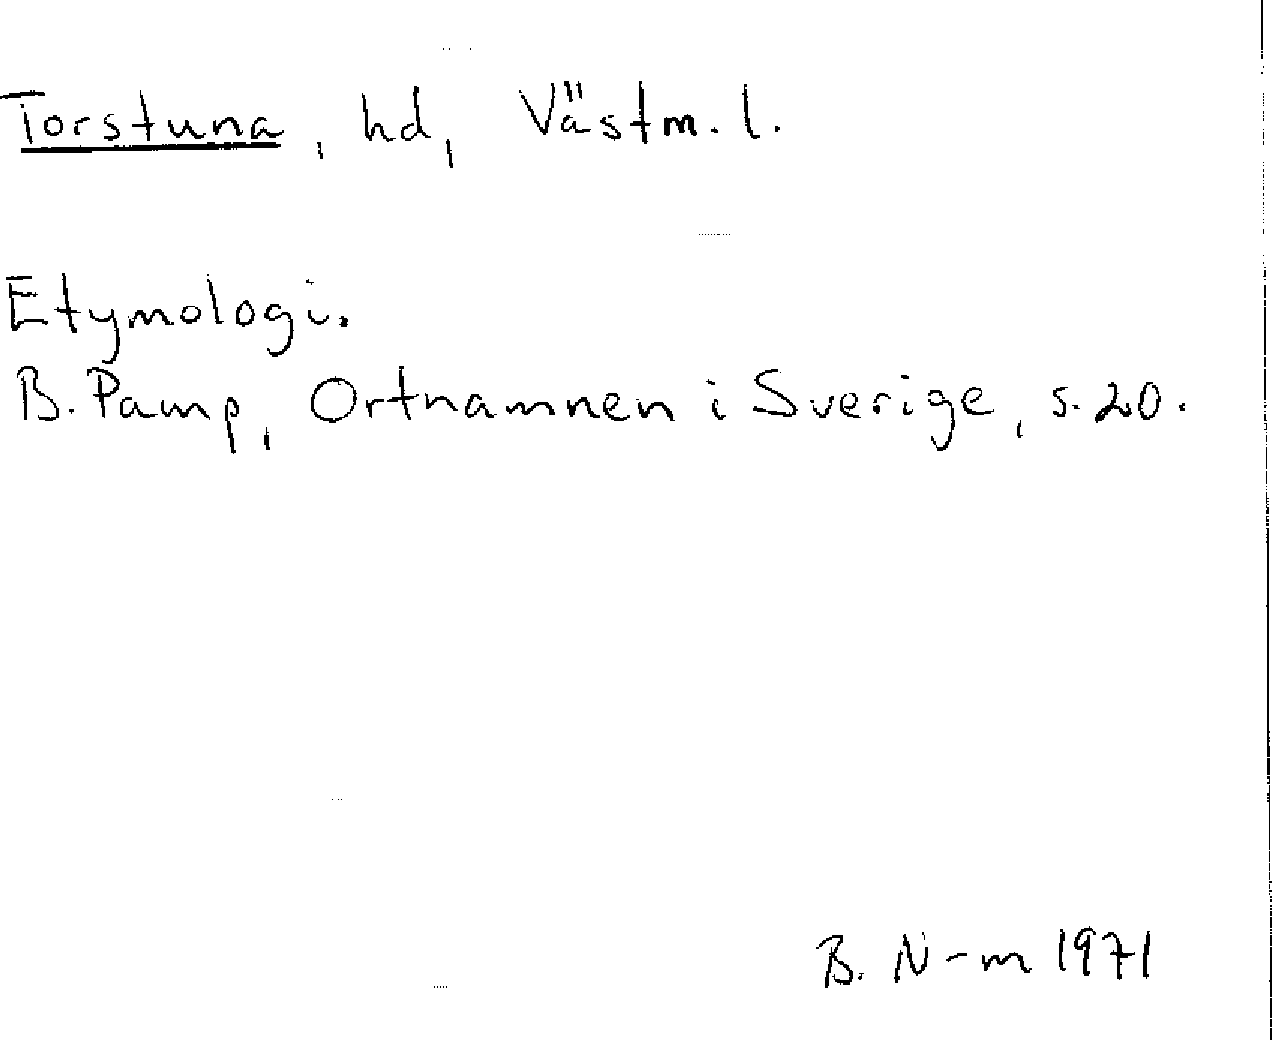 Torstuna, hd, Västm. l.
Etymologi.
B. Pamp, Ortnamnen i Sverige, s. 20.
B. N-m 1971